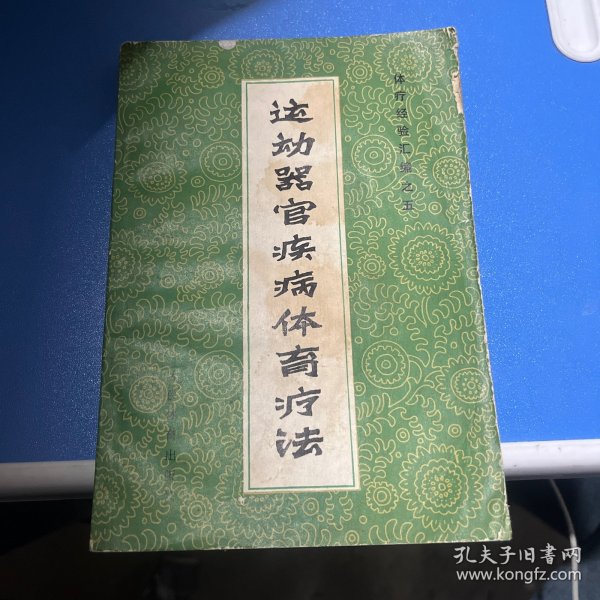 体疗经验汇编之五
运动器官疾病体育疗法
出版
孔夫子旧书网
www.kongfz.com